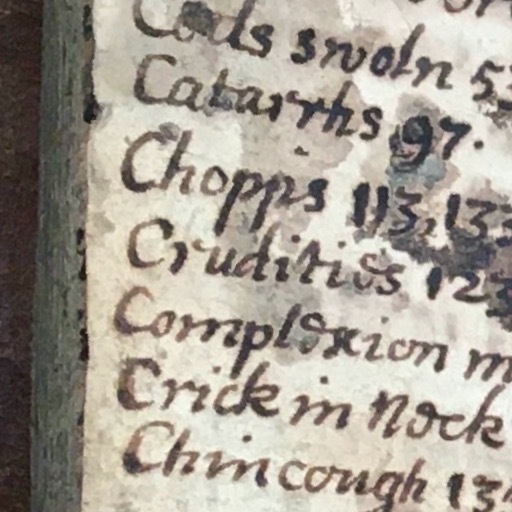 Cods swoln 53
Catarrhs 97.
Chopps 113, 133
Crudities 123
Complexion m
Crick in Neck
Chincough 13